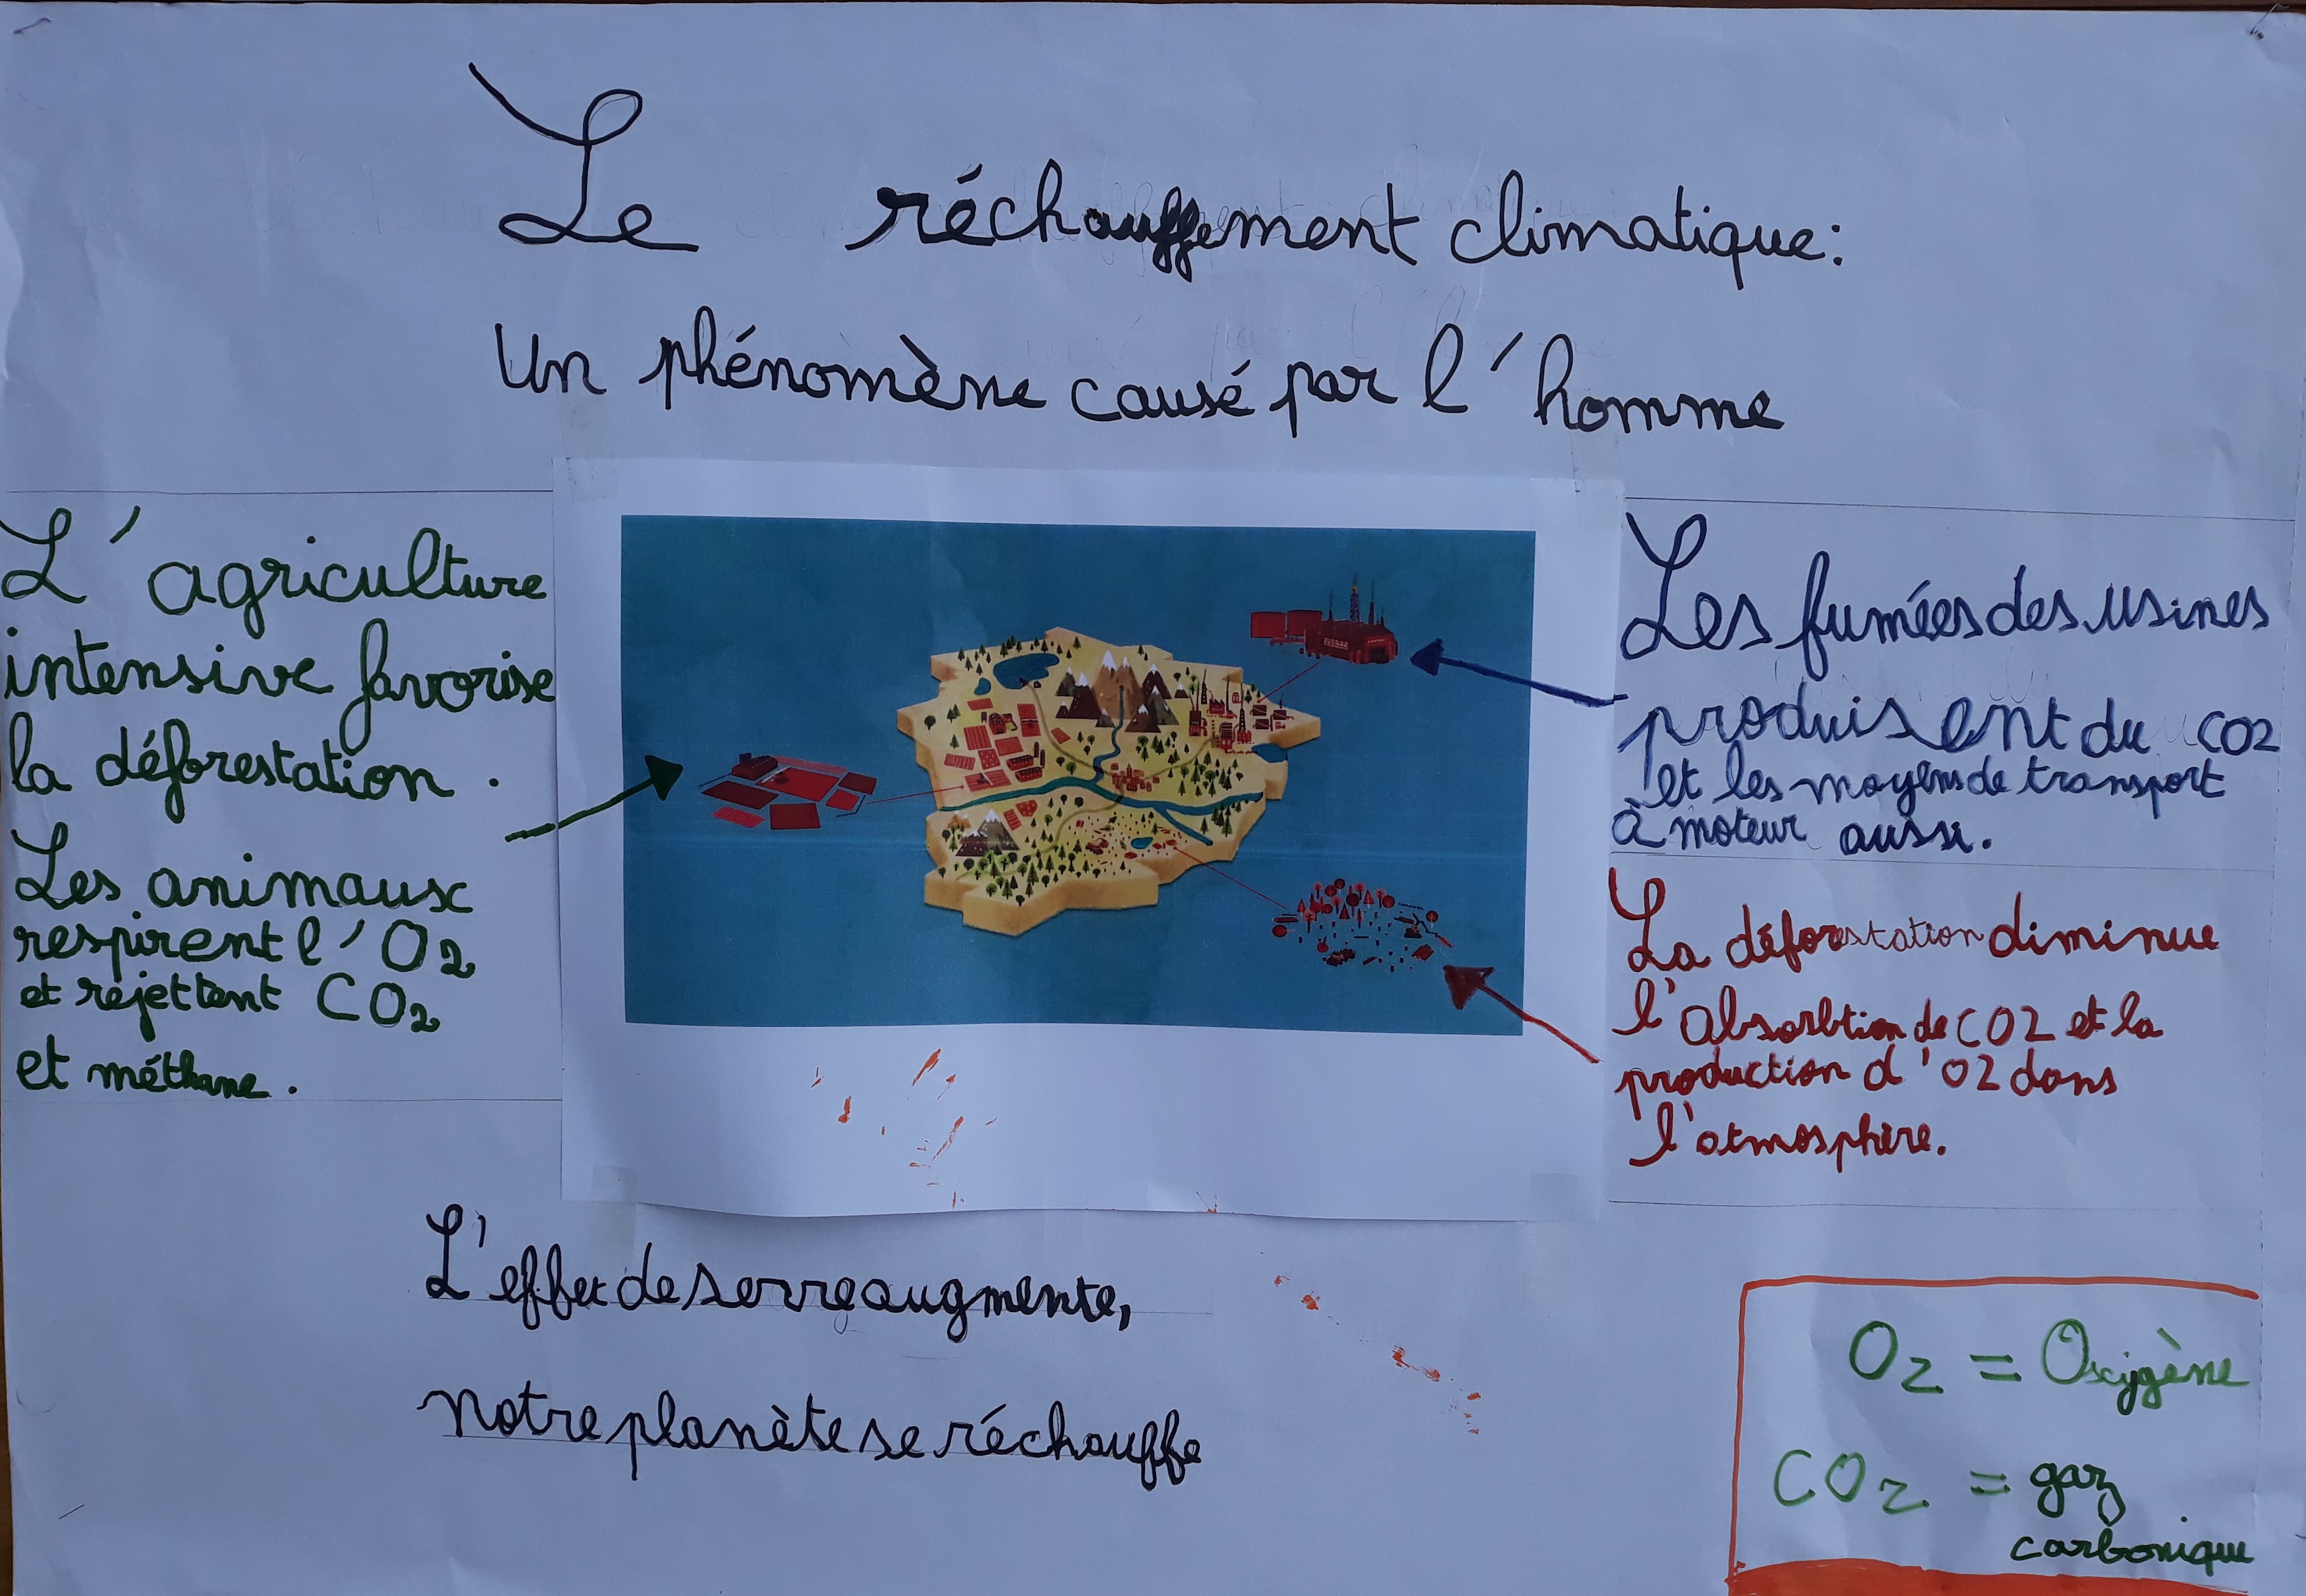 Le réchauffement climatique:
Un phénomène causé par l'homme
L'agriculture
intensive favorise
la déforestation.
Les animaux
respirent l'O2
et rejettent CO2
et méthane.
Les fumées des usines
produisent du CO2
et les moyens de transport
à moteur aussi.
La déforestation diminue
l'absorbtion de CO2 et la
production d'O2 dans
l'atmosphère.
L'effet de serre augmente,
notre planète se réchauffe
O2 = Oxygène
CO2 = gaz
carbonique